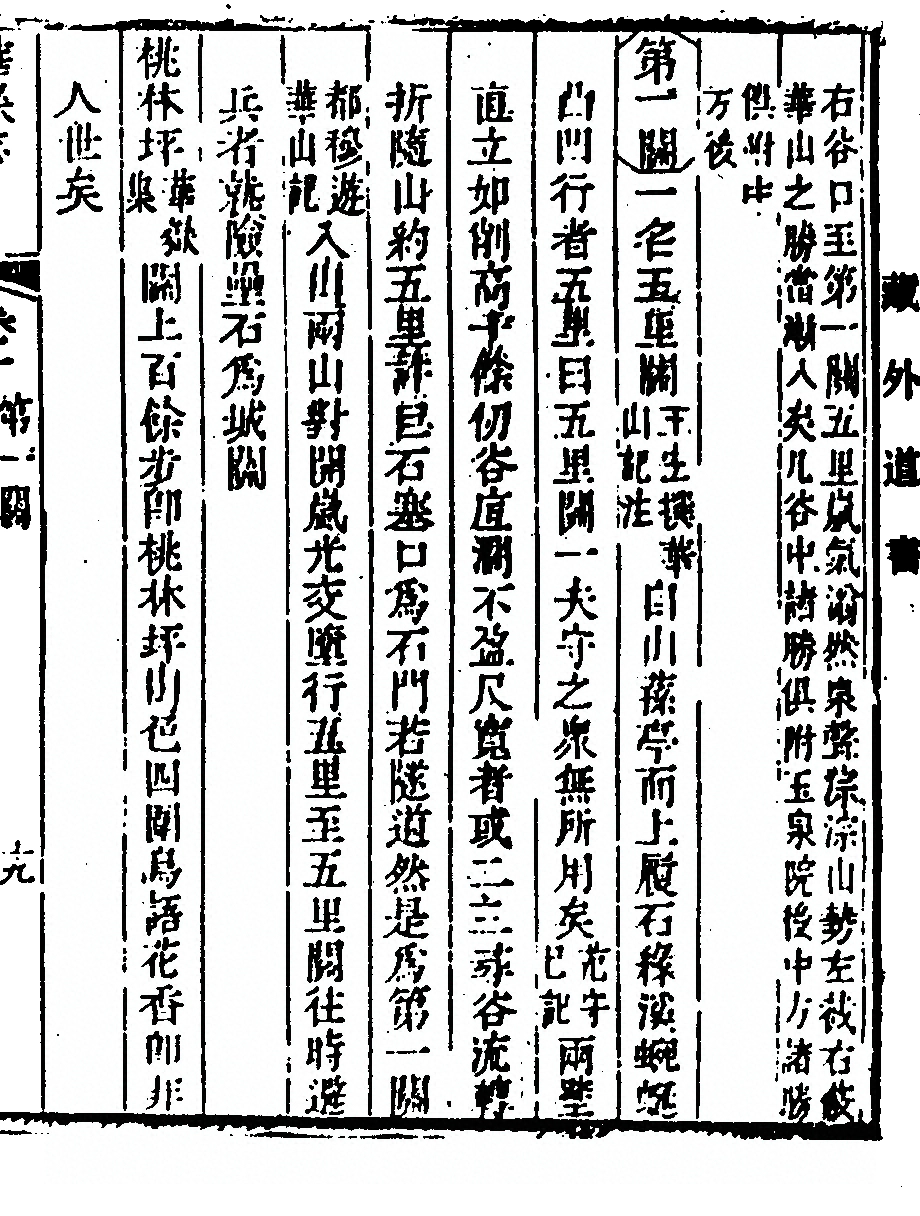 藏外道書
右谷口至第一關五里嵐氣滃然泉聲淙淙山勢左截右
華山之勝當漸入矣凡谷中諸勝俱附玉泉院後中方諸勝
俱附中
方後
第一關一名五里關
王生撰華
山記注
自山蓀亭而上履石緣溪蜿蜒
凸凹行者五里曰五里關一夫守之衆無所用矣
范守
己記
兩壁
直立如削高千餘仞谷直澗不盈尺寬者或二三尋谷流轉
折隨山約五里許巨石塞口爲石門若隧道然是爲第一關
都穆遊
華山記
入山兩山對開嵐光交墮行五里至五里關往時避
兵者就險壘石爲城關
桃林坪
華嶽
集
關上百餘步卽桃林坪山色四圍鳥語花香卽非
人世矣
第一關
九